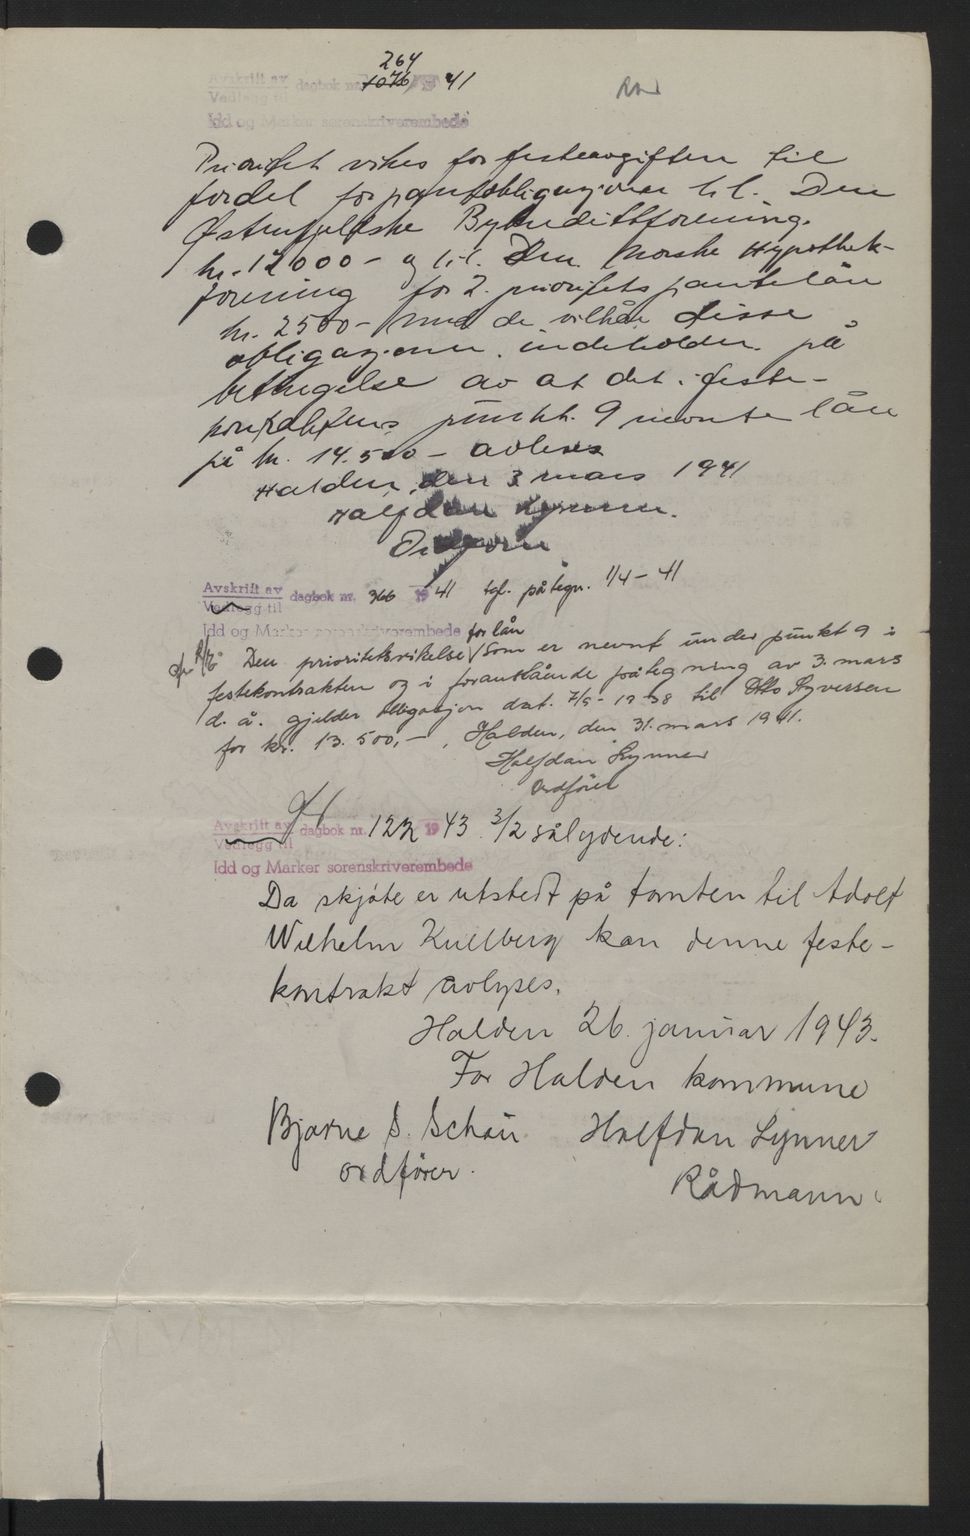 264
Avskrift av dagbok nr. 1076 1941
Vedlegg til
Idd og Marker sorenskriverembede
Prioritet vikes for festeavgiften til
fordel for pantobligasjoner til Den
Østenfjeldske Bykredittforening.
kr. 12000 - og til Den Norske Hypothek-
forening for 2. prioritets pantelån
kr. 2500 - med de vilkår disse
obligasjoner indeholder på
betingelse av at det i feste-
kontraktens punkt 9 nevnte lån
på kr. 14.500 - avlyses
Halden, den 3 mars 1941
Halfdan Lynner.
Avskrift av dagbok nr. 366 1941 tgl. påtegn. 1/4 - 41
Vedlegg til
Idd og Marker sorenskriverembede
for lån
Den prioritetsvikelse som er nevnt under punkt 9 i
festekontrakten og i foranstående påtegning av 3. mars
d. å. gjelder obligasjon dat. 7/9 - 1938 til Otto Syversen
for kr. 13.500,-, Halden, den 31. mars 1941.
Halfdan Lynner
ordfører
Avskrift av dagbok nr. 122 1943 3/2 sålydende:
Vedlegg til
Idd og Marker sorenskriverembede
Da skjøte er utstedt på tomten til Adolf
Wilhelm Kullberg kan denne feste-
kontrakt avlyses.
Halden 26. januar 1943.
For Halden kommune
Bjarne S. Schau Halfdan Lynner
ordfører. Rådmann.